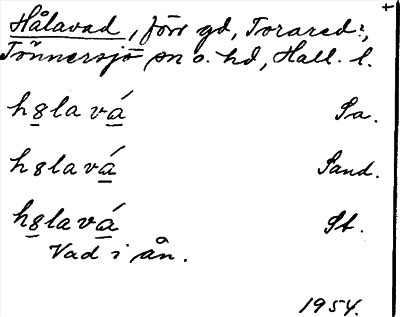 Hålavad, förr gd, Torared:,
Tönnersjö sn o. hd, Hall. l.
h8lavá Sa.
h8lavá Sand.
h8lavá St.
Vad i ån.
1954.